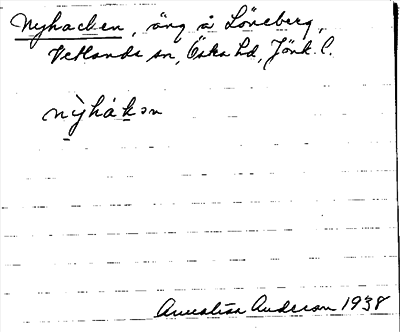 Nyhacken, äng å Löneberg,
Vetlanda sn, Östra hd, Jönk. l.
nỳhákən
Annalisa Anderson 1938